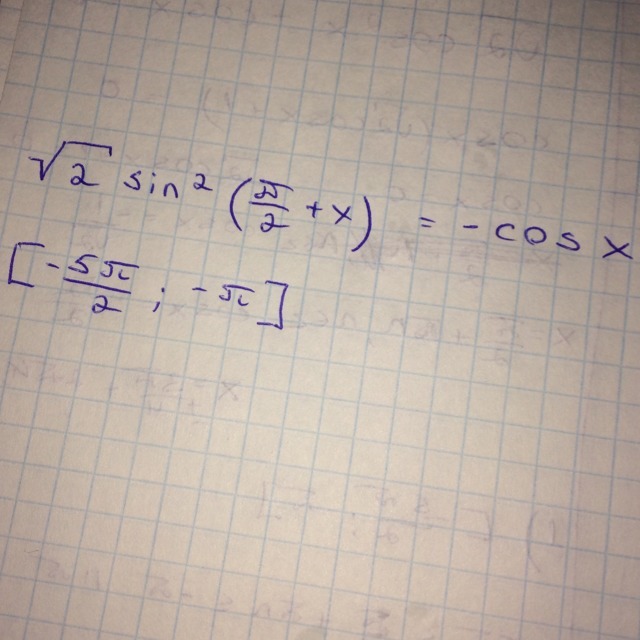 √2 sin² (π/2 + x) = - cos x
[-5π/2 ; -π]